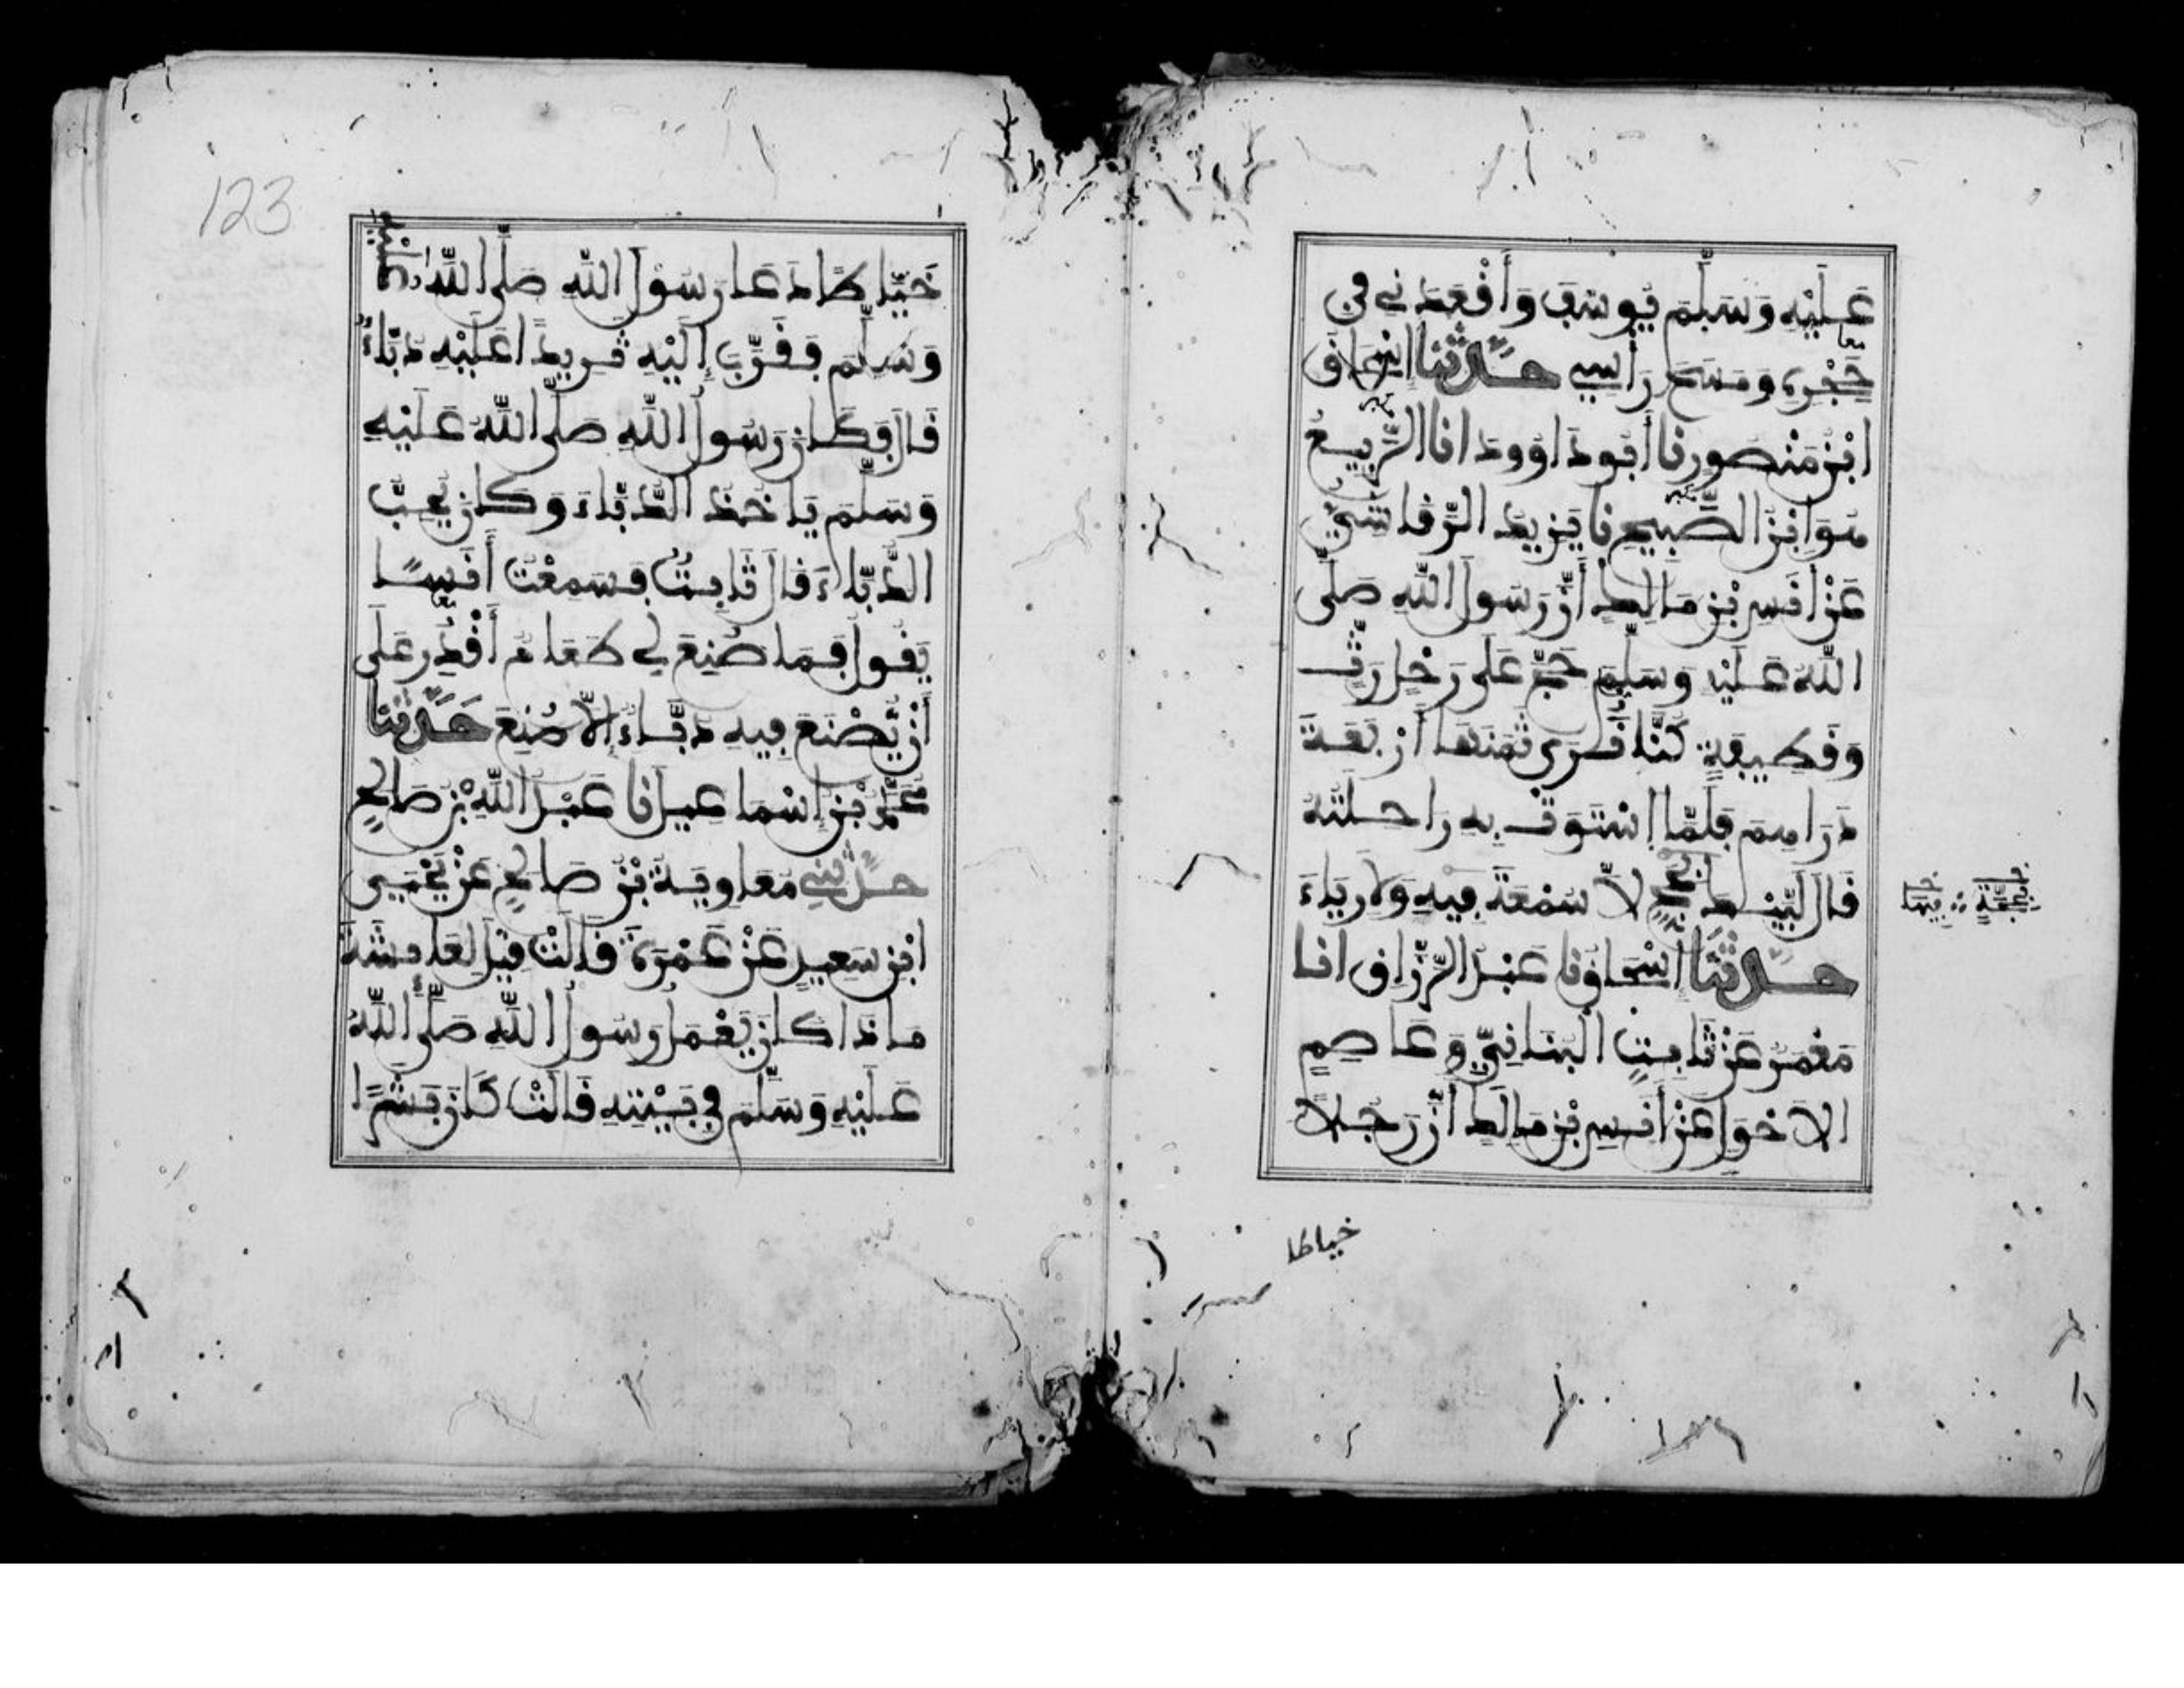 عَلَيْهِ وَسَلَّمَ يُوسُفَ وَأَقْعَدَنِي فِي
حَجْرِهِ وَمَسَحَ رَأْسِي حَدَّثَنَا إِسْحَاقُ
ابْنُ مَنْصُورٍ نا أَبُو دَاوُودَ انا الرَّبِيعُ
هُوَ ابْنُ الصَّبِيحِ نا يَزِيدُ الرَّقَاشِيُّ
عَنْ أَنَسِ بْنِ مَالِكٍ أَنَّ رَسُولَ اللَّهِ صَلَّى
اللَّهُ عَلَيْهِ وَسَلَّمَ حَجَّ عَلَى رَحْلٍ رَثٍّ
وَقَطِيفَةٍ كُنَّا نَرَى ثَمَنَهَا أَرْبَعَةَ
دَرَاهِمَ فَلَمَّا اسْتَوَتْ بِهِ رَاحِلَتُهُ
قَالَ لَبَّيْكَ بِحَجٍّ لَا سُمْعَةَ فِيهِ وَلَا رِيَاءَ
بِحَجَّةٍ فِيهَا
حَدَّثَنَا إِسْحَاقُ نا عَبْدُ الرَّزَّاقِ انا
مَعْمَرٌ عَنْ ثَابِتٍ الْبُنَانِيِّ وَعَاصِمٍ
الْأَحْوَلِ عَنْ أَنَسِ بْنِ مَالِكٍ أَنَّ رَجُلًا
خياطا
123
خَيَّاطًا دَعَا رَسُولَ اللَّهِ صَلَّى اللَّهُ عليه
وَسَلَّمَ فَقَرَّبَ إِلَيْهِ ثَرِيدًا عَلَيْهِ دُبَّاءٌ
قَالَ فَكَانَ رَسُولُ اللَّهِ صَلَّى اللَّهُ عَلَيْهِ
وَسَلَّمَ يَاخُذُ الدُّبَّاءَ وَكَانَ يُحِبُّ
الدُّبَّاءَ قَالَ ثَابِتٌ فَسَمِعْتُ أَنَسًا
يَقُولُ فَمَا صُنِعَ لِي طَعَامٌ أَقْدِرُ عَلَى
أَنْ يُصْنَعَ فِيهِ دُبَّاءٌ إِلَّا صُنِعَ حَدَّثَنَا
مُحَمَّدُ بْنُ إِسْمَاعِيلَ نا عَبْدُ اللَّهِ بْنُ صَالِحٍ
حَدَّثَنِي مُعَاوِيَةُ بْنُ صَالِحٍ عَنْ يَحْيَى
ابْنِ سَعِيدٍ عَنْ عَمْرَةَ قَالَتْ قِيلَ لِعَائِشَةَ
مَاذَا كَانَ يَعْمَلُ رَسُولُ اللَّهِ صَلَّى اللَّهُ
عَلَيْهِ وَسَلَّمَ فِي بَيْتِهِ قَالَتْ كَانَ بَشَرًا